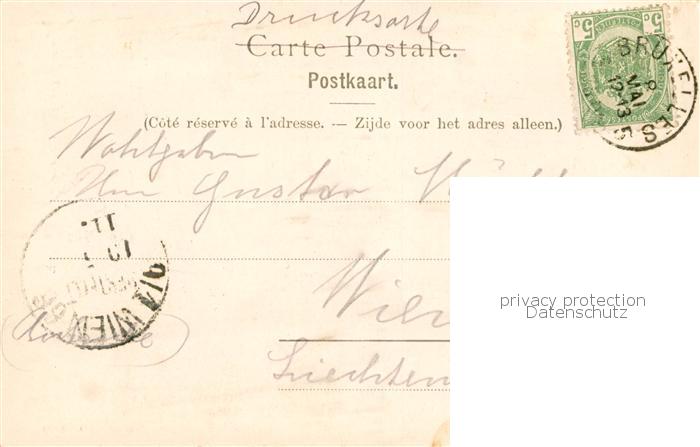 Drucksorte
Carte Postale.
Postkaart.
(Côté réservé à l'adresse. — Zijde voor het adres alleen.)
Wohlgeboren
Herrn Gustav
Wien
Liechten
BRUXELLES 5
8
MAI
12-13
5 5
WIEN
11.
privacy protection
Datenschutz